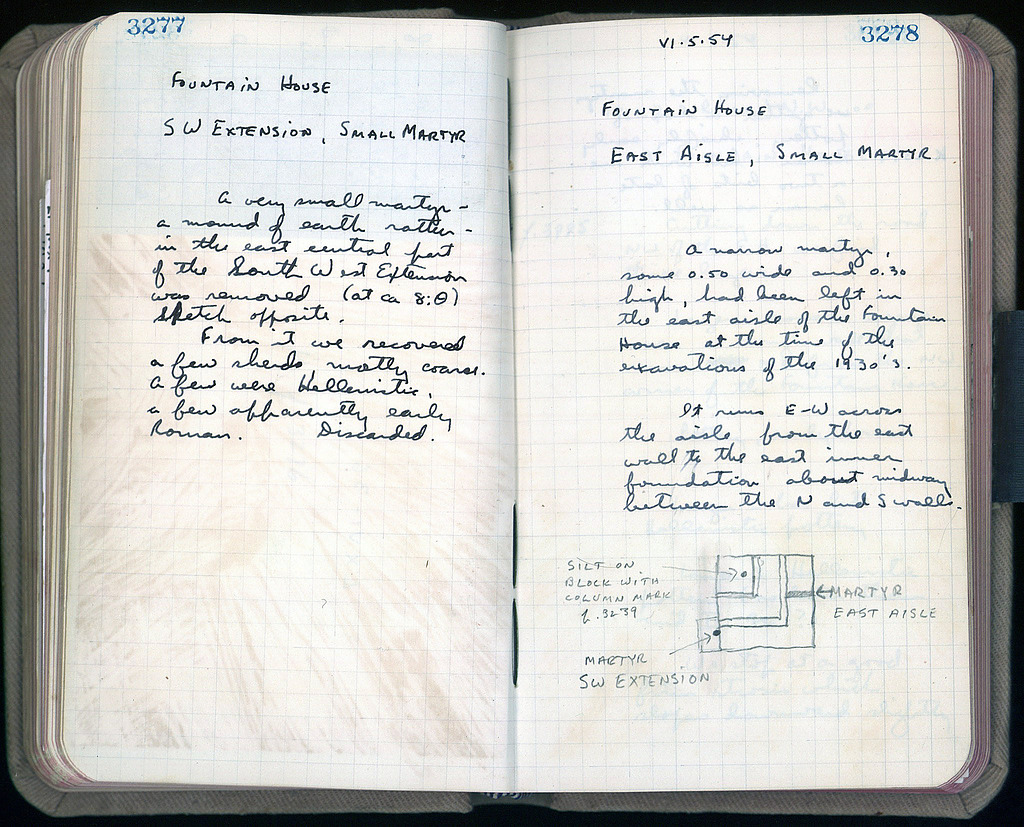 3277
Fountain House
SW Extension, Small Martyr
A very small martyr –
a mound of earth rather –
in the east central part
of the South West Extension
was removed (at ca 8:Θ)
Sketch opposite.
From it we recovered
a few sherds, mostly coarse.
A few were Hellenistic,
a few apparently early
Roman. Discarded.
VI.5.54
3278
Fountain House
East Aisle, Small Martyr
A narrow martyr,
some 0.50 wide and 0.30
high, had been left in
the east aisle of the Fountain
House at the time of the
excavations of the 1930's.
It runs E-W across
the aisle from the east
wall to the east inner
foundation about midway
between the N and S walls.
SILT ON
BLOCK WITH
COLUMN MARK
p. 3239
MARTYR
EAST AISLE
MARTYR
SW EXTENSION